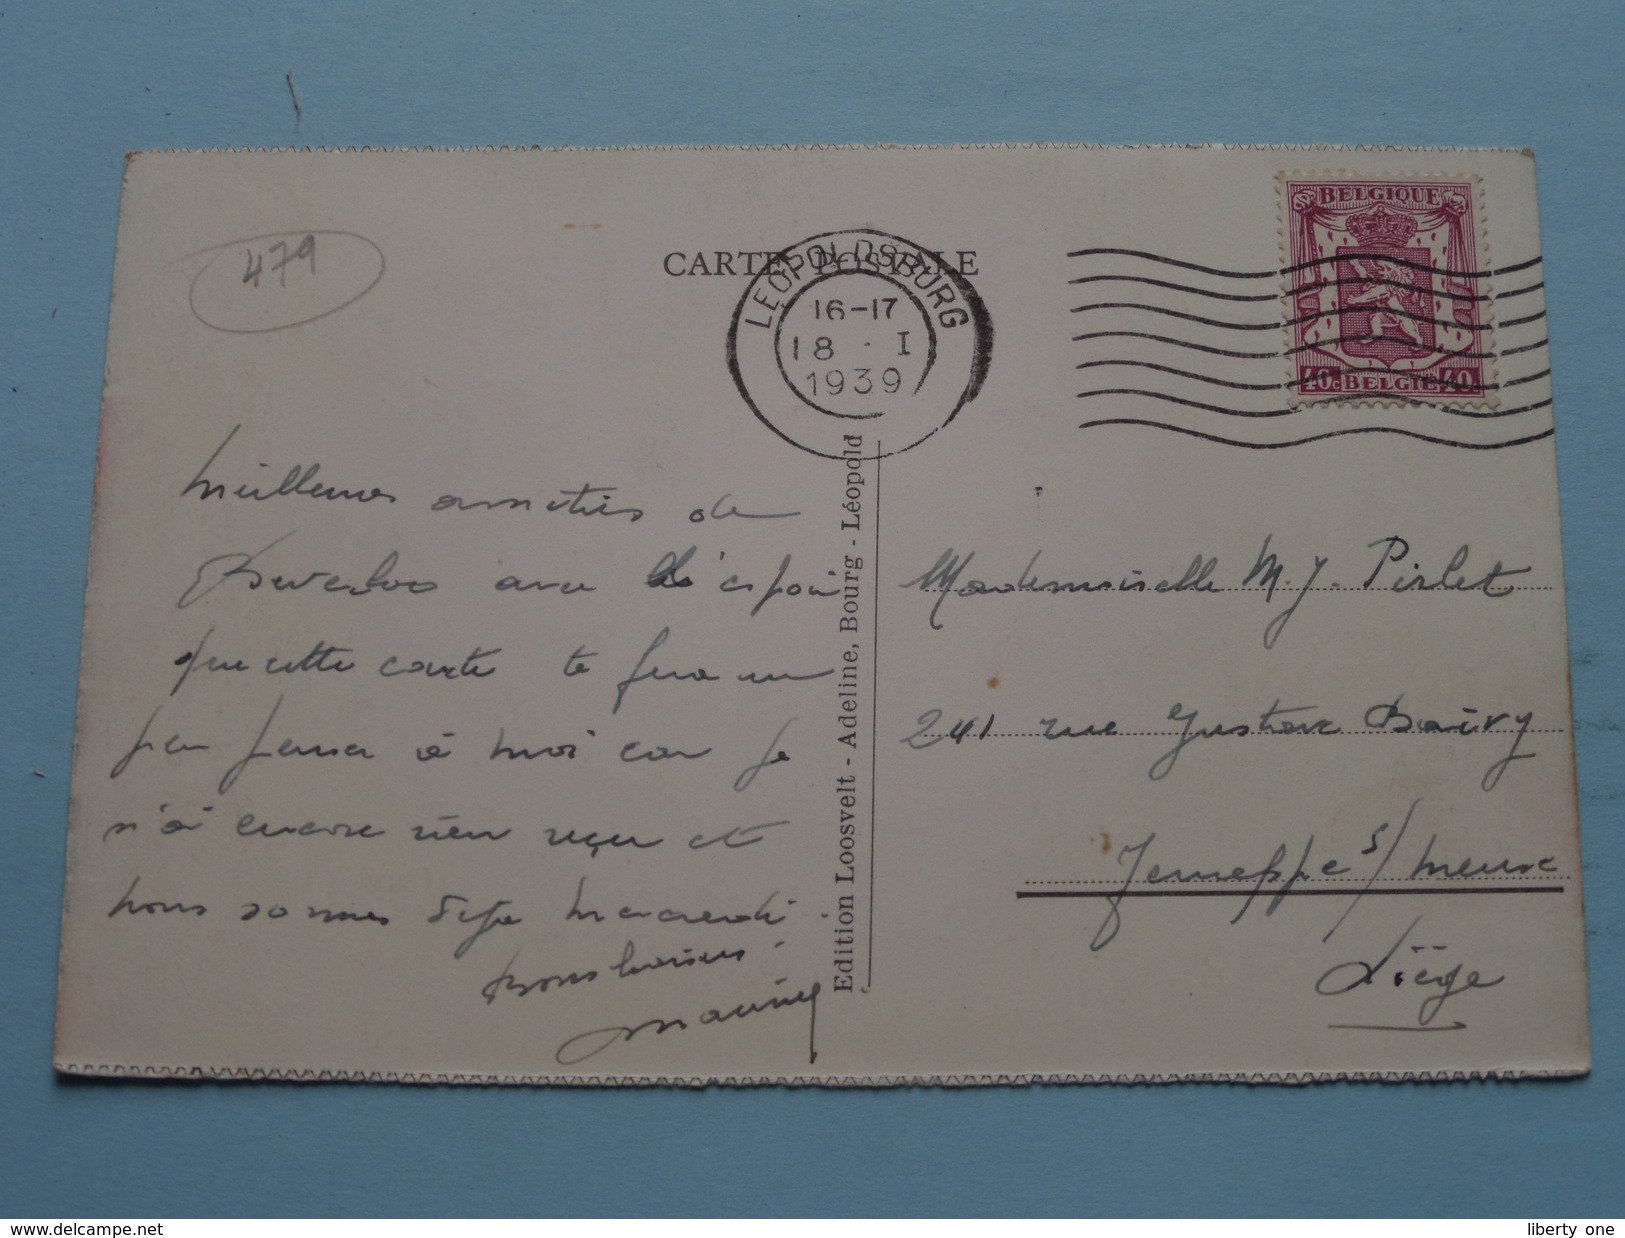 479
CARTE POSTALE
LEOPOLDSBURG
16-17
18 · I
1939
BELGIQUE
40c BELGIE 40
Meilleures amitiés de
Beverloo avec l'espoir
que cette carte te fera un
peu penser à moi car je
n'ai encore rien reçu et
nous sommes déjà mercredi
Bons baisers.
Edition Loosvelt - Adeline, Bourg - Léopold
Mademoiselle M. J. Pirlet
241 rue Gustave Baivy
Jemeppe s/ Meuse
Liège
www.delcampe.net
liberty_one